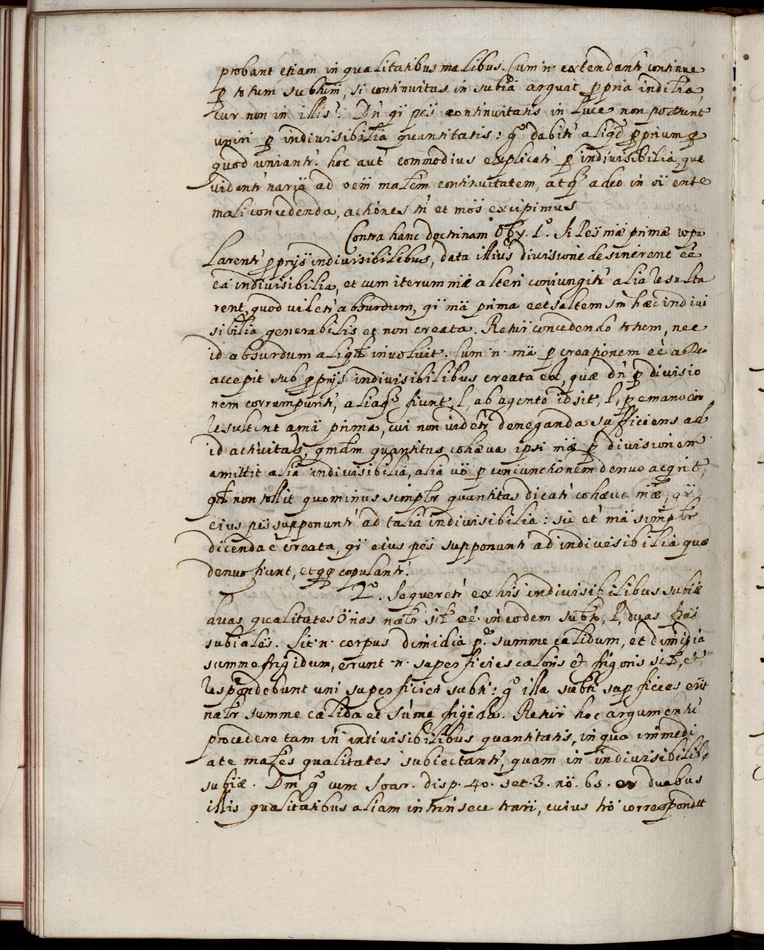 probant etiam in qualitatibus malibus. Cum n. extendant' continue
p totum subtum, si continuitas in subia arguit ppria indilia
cur non in illis? Dn qi pes continuitatis in luce non possunt
uniri p indivisibilia quantitatis: g° dabitr aliqd pprium p
quod uniantr. hoc aut commodius explicatr p indivisibilia, que
videntr naria ad oem malem continuitatem, atq adeo in oi ente
mali concedenda, actiones tn et mos excipimus
Contra hanc doctrinam Oby. 1° Si pes mae primae copu
larentr pprijs indivisibilibus, data illius divisione desinerent ee
ea indivisibilia, et cum iterum mae alteri coniungitr alia resulta
rent, quod videtr absurdum, qi ma prima eet saltem sm haec indivi
sibilia generabilis et non creata. Retur concedendo totum, nec
id absurdum aliqd involvit. Cum n. ma p creationem ee a Deo
accepit sub pprijs indivisibilibus creata est, quae dn p divisio
nem corrumpuntr, aliaq fiunt, l, ab agente id sit, l, p emanaon
resultent a ma prima, cui non videtr deneganda sufficiens ad
id activitas, qmdm quantitas cohaeva ipsi mae p divisionem
amittit alia indivisibilia, alia vo p coniunctionem denuo acqrit,
qd non tollit quominus simplr quantitas dicatr cohaeva mae, qi
eius pes supponuntr ad talia indivisibilia: sic et ma simplr
dicenda e creata, qi eius pes supponuntr ad indivisibilia quae
denuo fiunt, et qq copulantr.
2°. Sequeretr ex his indivisibilibus subiae
duas qualitates Onas natr sil ee in eodem subto, l, duas fras
subiales. Sit n. corpus dimidia p° summe calidum, et dimidia
summe frigidum, erunt n. superficies caloris et frigoris sil, et
respondebunt uni superficiei subti: g° illa subti superficies erit
natr summe calida et sume frigida. Retur hoc argumentu
procedere tam in indivisibilibus quantitatis, in qua immedi
ate males qualitates subiectantr, quam in indivisibilib9
subiae. Dm g° cum Soar. disp. 40. set. 3. no. 65. ex duabus
illis qualitatibus aliam intrinsece trari, cuius tro correspondet